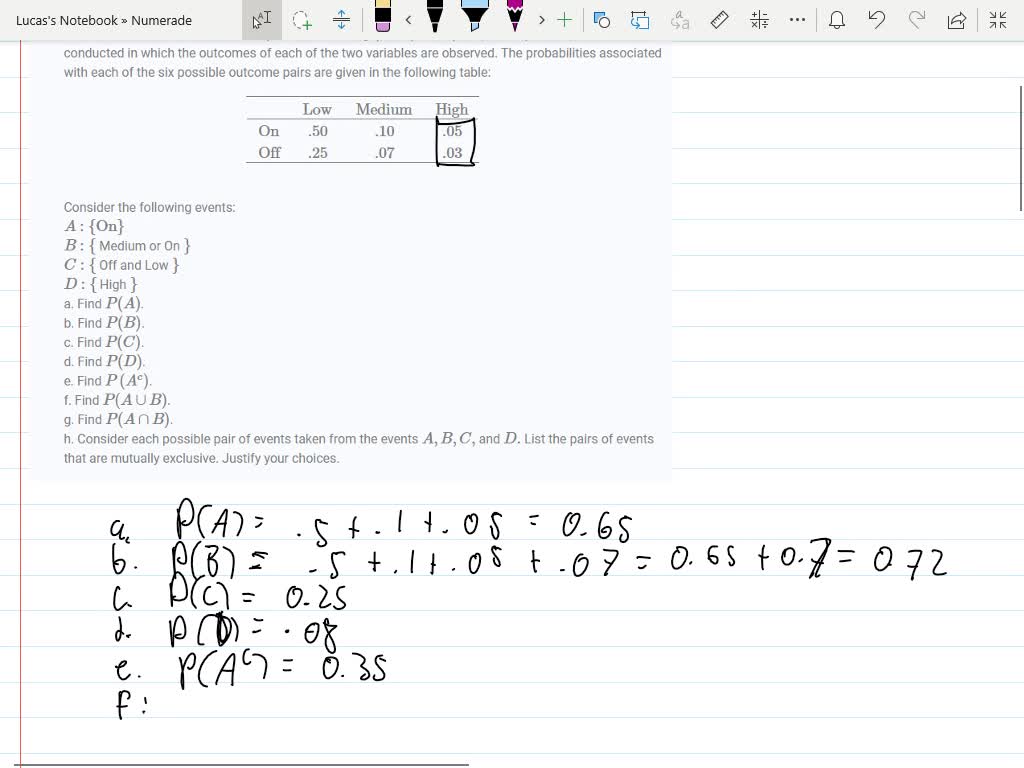 Lucas's Notebook » Numerade
conducted in which the outcomes of each of the two variables are observed. The probabilities associated
with each of the six possible outcome pairs are given in the following table:
Low Medium High
On .50 .10 .05
Off .25 .07 .03
Consider the following events:
A : {On}
B : { Medium or On }
C : { Off and Low }
D : { High }
a. Find P(A).
b. Find P(B).
c. Find P(C).
d. Find P(D).
e. Find P(Aᶜ).
f. Find P(A ∪ B).
g. Find P(A ∩ B).
h. Consider each possible pair of events taken from the events A, B, C, and D. List the pairs of events
that are mutually exclusive. Justify your choices.
a. P(A) = .5 + .1 + .05 = 0.65
b. P(B) = .5 + .1 + .05 + .07 = 0.65 + 0.7 = 0.72
c. P(C) = 0.25
d. P(D) = .08
e. P(Aᶜ) = 0.35
f: